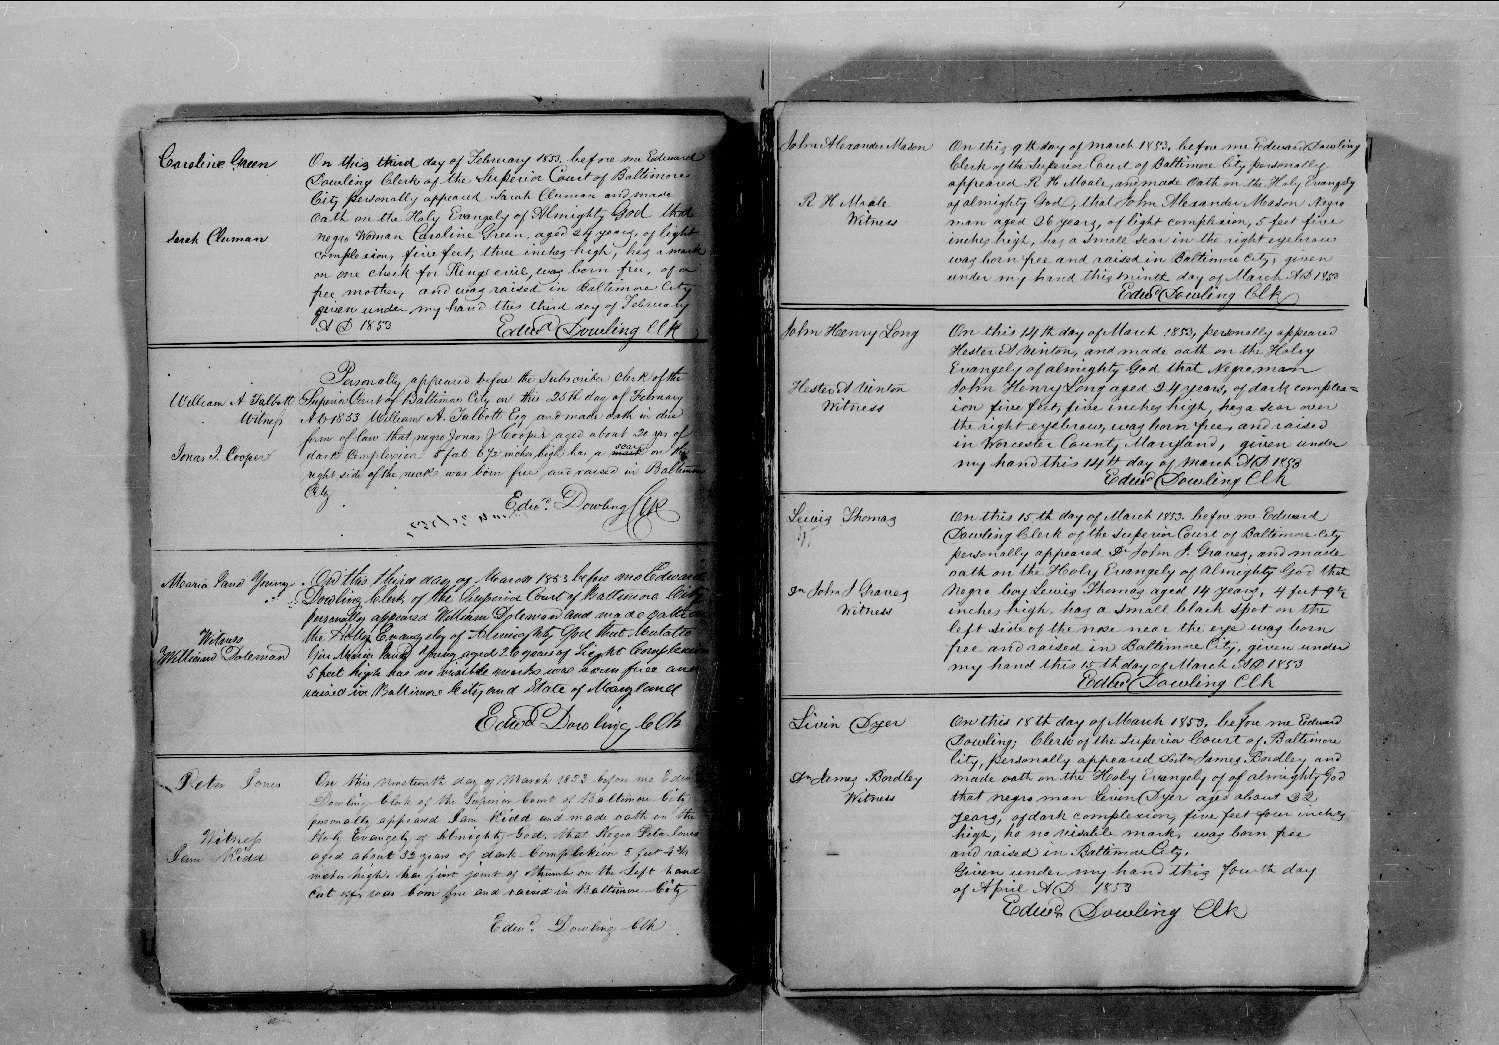 Caroline Green
On this third day of February 1853. before me Edward
Dowling Clerk of the Superior Court of Baltimore
City personally appeared Sarah Cluman and made
Oath on the Holy Evangely of Almighty God that
Sarah Cluman
negro Woman Caroline Green, aged 24 years, of light
complexion, five feet, three inches high, has a mark
on one cheek for Kings evil, was born free, of a
free mother, and was raised in Baltimore City
given under my hand this third day of February
A D 1853
Edwd Dowling Clk
Personally appeared before the Subscriber Clerk of the
William A Talbott
Superior Court of Baltimore City on this 25th day of February
Witness
A D 1853 William A. Talbott Esq and made oath in due
form of law that negro Jonas J Cooper aged about 20 yrs of
Jonas J. Cooper
dark Complexion 5 feet 6 1/2 inches high has a scar mark on the
right side of the neck was born free and raised in Baltimore
City
Edwd Dowling Clk
Maria Young
On this third day of March 1853 before me Edward
Dowling Clerk of the Superior Court of Baltimore City
personally appeared William Doleman and made oath on
the Holy Evangely of Almighty God that Mulatto
Witness
William Doleman
Girl Maria Young aged 26 years of Light Complexion
5 feet high has no visible marks was born free and
raised in Baltimore City and State of Maryland
Edwd Dowling Clk
Peter Jones
On this nineteenth day of March 1853 before me Edwd
Dowling Clerk of the Superior Court of Baltimore City
personally appeared Sam Kidd and made oath on the
Witness
Sam Kidd
Holy Evangely of Almighty God, that Negro Peter Jones
aged about 32 years of dark Complexion 5 feet 4 3/4
inches high, has first joint of thumb on the Left hand
cut off, was born free and raised in Baltimore City
Edwd Dowling Clk
John Alexander Mason
On this 9th day of March 1853, before me Edward Dowling
Clerk of the Superior Court of Baltimore City personally
appeared R H Moale, and made Oath on the Holy Evangely
R H Moale
Witness
of almighty God, that John Alexander Mason Negro
man aged 26 years, of light complexion, 5 feet five
inches high, has a small scar in the right eyebrow
was born free and raised in Baltimore City, given
under my hand this ninth day of March A D 1853
Edwd Dowling Clk
John Henry Long
On this 14th day of March 1853, personally appeared
Hester A Vinton, and made oath on the Holy
Evangely of almighty God that Negro man
Hester A Vinton
Witness
John Henry Long aged 24 years, of dark complex=
ion five feet, five inches high, has a scar over
the right eyebrow, was born free, and raised
in Worcester County, Maryland, given under
my hand this 14th day of March A D 1853
Edwd Dowling Clk
Lewis Thomas
On this 15th day of March 1853. before me Edward
Dowling Clerk of the Superior Court of Baltimore City
personally appeared Dr John J. Graves, and made
oath on the Holy Evangely of almighty God that
Dr John J Graves
Witness
Negro boy Lewis Thomas aged 14 years, 4 feet 9 1/2
inches high, has a small black spot on the
left side of the nose near the eye was born
free and raised in Baltimore City, given under
my hand this 15th day of March A D 1853
Edwd Dowling Clk
Livin Dyer
On this 18th day of March 1853. before me Edward
Dowling; Clerk of the Superior Court of Baltimore
City, personally appeared James Bordley and
Dr James Bordley
Witness
made oath on the Holy Evangely of of almighty God
that negro man Leven Dyer aged about 32
years, of dark complexion, five feet four inches
high, ho no visable mark, was born free
and raised in Baltimore City.
Given under my hand this fourth day
of April A D 1853
Edwd Dowling Clk